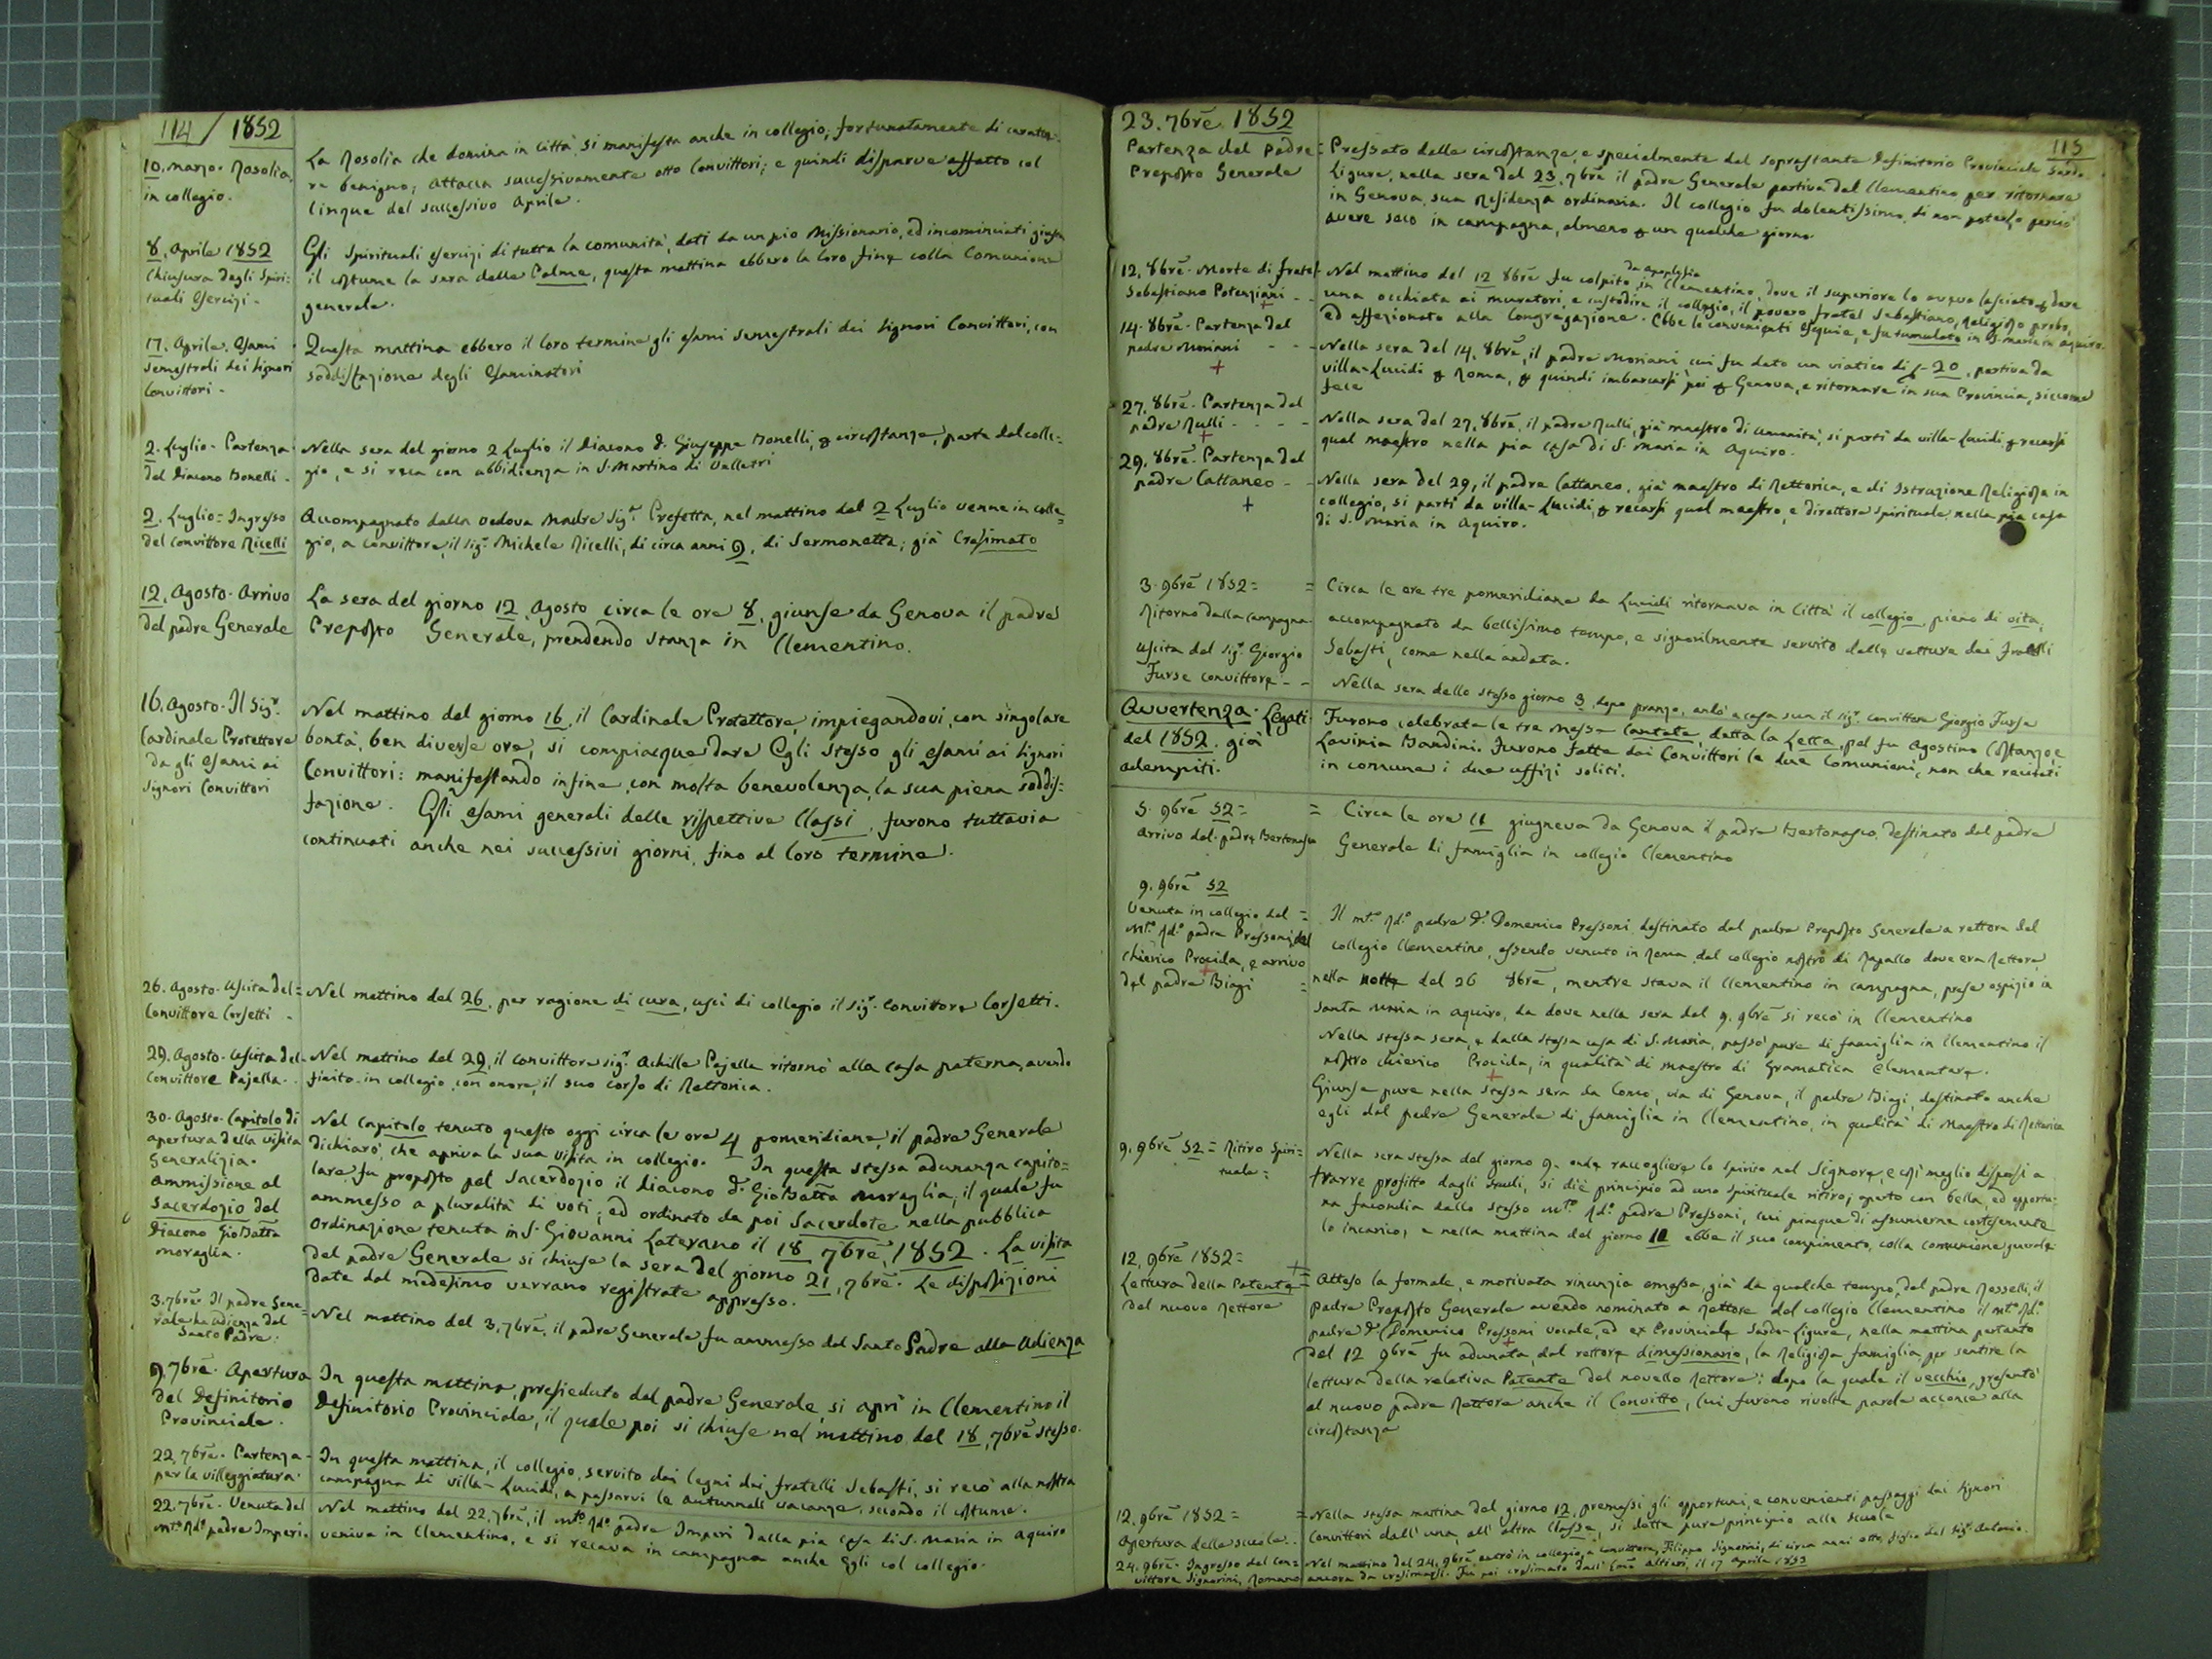 114 / 1852
10. marzo. Rosolia
in collegio.
La Rosolia che domina in Città, si manifesta anche in collegio; fortunatamente di caratte=
re benigno; attacca successivamente otto Convittori; e quindi disparve affatto col
cinque del successivo Aprile.
8. Aprile 1852
Chiusura degli Spiri=
tuali Esercizi -
Gli Spirituali esercizi di tutta la comunità, dati da un pio Missionario, ed incominciati giusta
il costume la sera delle Palme, questa mattina ebbero la loro fine colla Comunione
generale.
17. Aprile. Esami
semestrali dei Signori
Convittori -
Questa mattina ebbero il loro termine gli esami semestrali dei Signori Convittori, con
soddisfazione degli Esaminatori
2. Luglio - Partenza
del Diacono Bonelli -
Nella sera del giorno 2 Luglio il Diacono d. Giuseppe Bonelli, circostanze, parte dal colle=
gio, e si reca con ubbidienza in S. Martino di Velletri
2. Luglio = Ingresso
del Convittore Ricelli
Accompagnato dalla vedova Madre Sigra Prefetta, nel mattino del 2 Luglio venne in colle=
gio, a convittore, il Sigr Michele Ricelli, di circa anni 9, di Sermonetta; già Cresimato
12. Agosto - Arrivo
del padre Generale
La sera del giorno 12, Agosto circa le ore 8, giunse da Genova il padre
Preposto Generale, prendendo stanza in Clementino.
16. Agosto - Il Sigr
Cardinale Protettore
da gli esami ai
Signori Convittori
Nel mattino del giorno 16, il Cardinale Protettore, impiegandovi, con singolare
bontà, ben diverse ore, si compiacque dare Egli stesso gli esami ai Signori
Convittori: manifestando infine, con molta benevolenza, la sua piena soddis=
fazione. Gli esami generali delle rispettive Classi, furono tuttavia
continuati anche nei successivi giorni, fino al loro termine.
26. Agosto. Uscita del=
Convittore Corsetti -
Nel mattino del 26, per ragione di cura, uscì di collegio il Sigr. Convittore Corsetti.
29. Agosto. Uscita del
Convittore Pajella -
Nel mattino del 29, il convittore sigr. Achille Pajella ritornò alla casa paterna, avendo
finito in collegio, con onore, il suo corso di Rettorica.
30. Agosto. Capitolo di
apertura della visita
Generalizia.
ammissione al
Sacerdozio del
Diacono GioBatta
Moraglia.
Nel Capitolo tenuto questo oggi circa le ore 4 pomeridiane, il padre Generale
dichiarò, che apriva la sua visita in collegio. In questa stessa adunanza capito=
lare fu proposto pel Sacerdozio il diacono d. GioBatta Moraglia, il quale fu
ammesso a pluralità di voti; ed ordinato da poi Sacerdote nella pubblica
ordinazione tenuta in S. Giovanni Laterano il 18 7bre, 1852. La visita
del padre Generale si chiuse la sera del giorno 21, 7bre. Le disposizioni
date dal medesimo verrano registrate appresso.
3. 7bre. Il padre Gene=
rale ha udienza dal
Santo Padre.
Nel mattino del 3, 7bre, il padre Generale fu ammesso dal Santo Padre alla udienza
9. 7bre. Apertura
del Definitorio
Provinciale.
In questa mattina, presieduto dal padre Generale, si aprì in Clementino il
Definitorio Provinciale, il quale poi si chiuse nel mattino del 18, 7bre stesso.
22, 7bre. Partenza
per la villeggiatura.
In questa mattina, il collegio, servito dai legni dei fratelli Sebasti, si recò alla nostra
campagna di villa-Lucidi, a passarvi le autunnali vacanze, secondo il costume.
22. 7bre. Venuta del
mto Rdo padre Imperi.
Nel mattino del 22, 7bre, il mto Rdo padre Imperi dalla pia casa di S. Maria in Aquiro
veniva in Clementino, e si recava in campagna anche Egli col collegio.
115
23. 7bre 1852
Partenza del Padre
Preposto Generale
Pressato dalle circostanze, e specialmente dal soprastante Definitorio Provinciale Sardo
Ligure, nella sera del 23. 7bre il padre Generale partiva dal Clementino per ritornare
in Genova, sua Residenza ordinaria. Il collegio fu dolentissimo, di non poterlo perciò
avere seco in campagna, almeno un qualche giorno.
12. 8bre. Morte di fratel
Sebastiano Potenziani - -
Nel mattino del 12 8bre fu colpito da apoplesia in Clementino, dove il superiore lo aveva lasciato dare
una occhiata ai muratori, e custodire il collegio, il povero fratel Sebastiano, Religioso probo,
ed affezionato alla Congregazione. Ebbe le convenienti esequie, e fu tumulato in S. Maria in Aquiro.
14. 8bre. Partenza del
padre Moriani - - -
Nella sera del 14. 8bre, il padre Moriani cui fu dato un viatico di 20, partiva da
villa-Lucidi Roma, quindi imbarcarsi poi Genova, e ritornare in sua Provincia, siccome
fece
27. 8bre. Partenza del
padre Rulli - - - -
Nella sera del 27. 8bre, il padre Rulli, già maestro di umanità, si partì da villa-Lucidi recarsi
qual maestro nella pia casa di S. Maria in Aquiro.
29. 8bre. Partenza del
padre Cattaneo - -
Nella sera del 29, il padre Cattaneo, già maestro di Rettorica, e di Istruzione Religiosa in
collegio, si partì da villa-Lucidi, recarsi qual maestro, e direttore spirituale nella pia casa
di S. Maria in Aquiro.
3. 9bre 1852 =
Ritorno dalla campagna
= Circa le ore tre pomeridiane da Lucidi ritornava in Città il collegio, pieno di vita,
accompagnato da bellissimo tempo, e signorilmente servito dalle vetture dei fratelli
Sebasti, come nella andata.
uscita del sigr. Giorgio
Furse convittore - -
Nella sera dello stesso giorno 3, dopo pranzo, andò a casa sua il sigr. convittore Giorgio Furse
Avvertenza - Legati
del 1852. già
adempiti.
Furono celebrate le tre messe cantate, detta la Letta, pel fu Agostino Costanzo, e
Lavinia Bandini. Furono fatte dai Convittori le due Comunioni, non che recitati
in comune i due uffizi soliti.
5. 9bre 52 =
arrivo del padre Bertonasco
= Circa le ore 11 giugneva da Genova il padre Bertonasco, destinato dal padre
Generale di famiglia in collegio Clementino
9. 9bre 52
Venuta in collegio del =
mto Rdo padre Pressoni, del
chierico Procida, e arrivo
del padre Biagi =
Il mto Rdo padre D. Domenico Pressoni, destinato dal padre Preposto Generale a rettore del
collegio Clementino, essendo venuto in Roma dal collegio nostro di Rapallo dove era Rettore,
nella notte del 26 8bre, mentre stava il Clementino in campagna, prese ospizio in
Santa Maria in Aquiro, da dove nella sera del 9. 9bre si recò in Clementino
Nella stessa sera, e dalla stessa casa di S. Maria, passò pure di famiglia in Clementino il
nostro chierico Procida, in qualità di maestro di Gramatica Elementare.
Giunse pure nella stessa sera da Como, via di Genova, il padre Biagi, destinato anche
egli dal padre Generale di famiglia in Clementino, in qualità di Maestro di Rettorica
9. 9bre 52 = Ritiro Spiri=
tuale =
Nella sera stessa del giorno 9. onde raccogliere lo spirito nel Signore, e così meglio disporsi a
trarre profitto dagli studi, si diè principio ad uno spirituale ritiro; aperto con bella, ed opportu=
na facondia dallo stesso mto Rdo padre Pressoni, cui piacque di assumerne cortesemente
lo incarico; e nella mattina del giorno ebbe il suo compimento, colla comunione generale
12, 9bre 1852 =
Lettura della Patente =
del nuovo Rettore
Atteso la formale, e motivata rinunzia emessa, già da qualche tempo, dal padre Rosselli, il
padre Preposto Generale avendo nominato a Rettore del collegio Clementino il mto Rdo
padre D. Domenico Pressoni vocale, ed ex Provinciale Sardo-Ligure, nella mattina pertanto
del 12 9bre fu adunata, dal rettore dimessionario, la Religiosa famiglia, per sentire la
lettura della relativa Patente del novello Rettore: dopo la quale il vecchio, presentò
al nuovo padre Rettore anche il Convitto, cui furono rivolte parole acconce alla
circostanza
12, 9bre 1852 =
Apertura delle scuole. .
= Nella stessa mattina del giorno 12, premessi gli opportuni, e convenienti passaggi dei Signori
Convittori dall' una, all' altra Classe, si dette pure principio alle scuole
24. 9bre. Ingresso del Con=
vittore Signorini, Romano
Nel mattino del 24. 9bre entrò in collegio, a convittore, Filippo Signorini, di circa anni otto, figlio del Sigr. Antonio.
ancora da cresimarsi. Fu poi cresimato dall' Emo Altieri, il 17 Aprile 1853